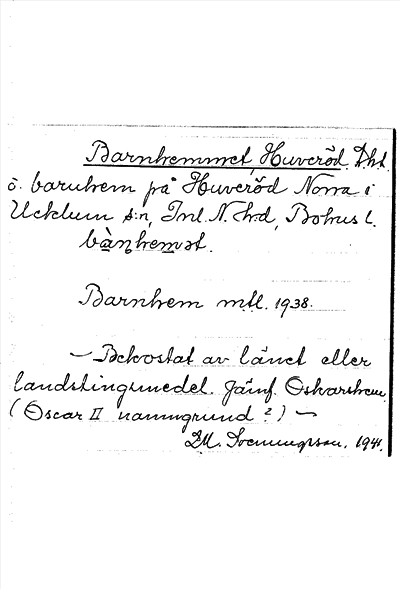 Barnhemmet, Huveröd. Dht.
ö. barnhem på Huveröd Norra i
Ucklum s:n, Inl. N. hd, Bohus l.
bàn̥hem̥ət.
Barnhem mtl. 1938.
— Bekostat av länet eller
landstingsmedel. Jämf. Oskarshem
(Oscar II namngrund?) —
M. Svenungsson. 1941.